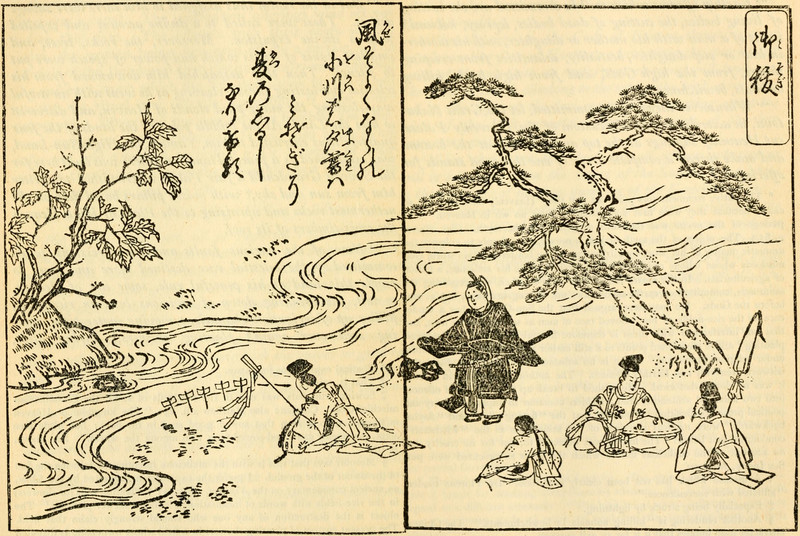 御祓
風そよくならの
小川の夕暮ハ
みそぎそ
夏のしるし
なりける